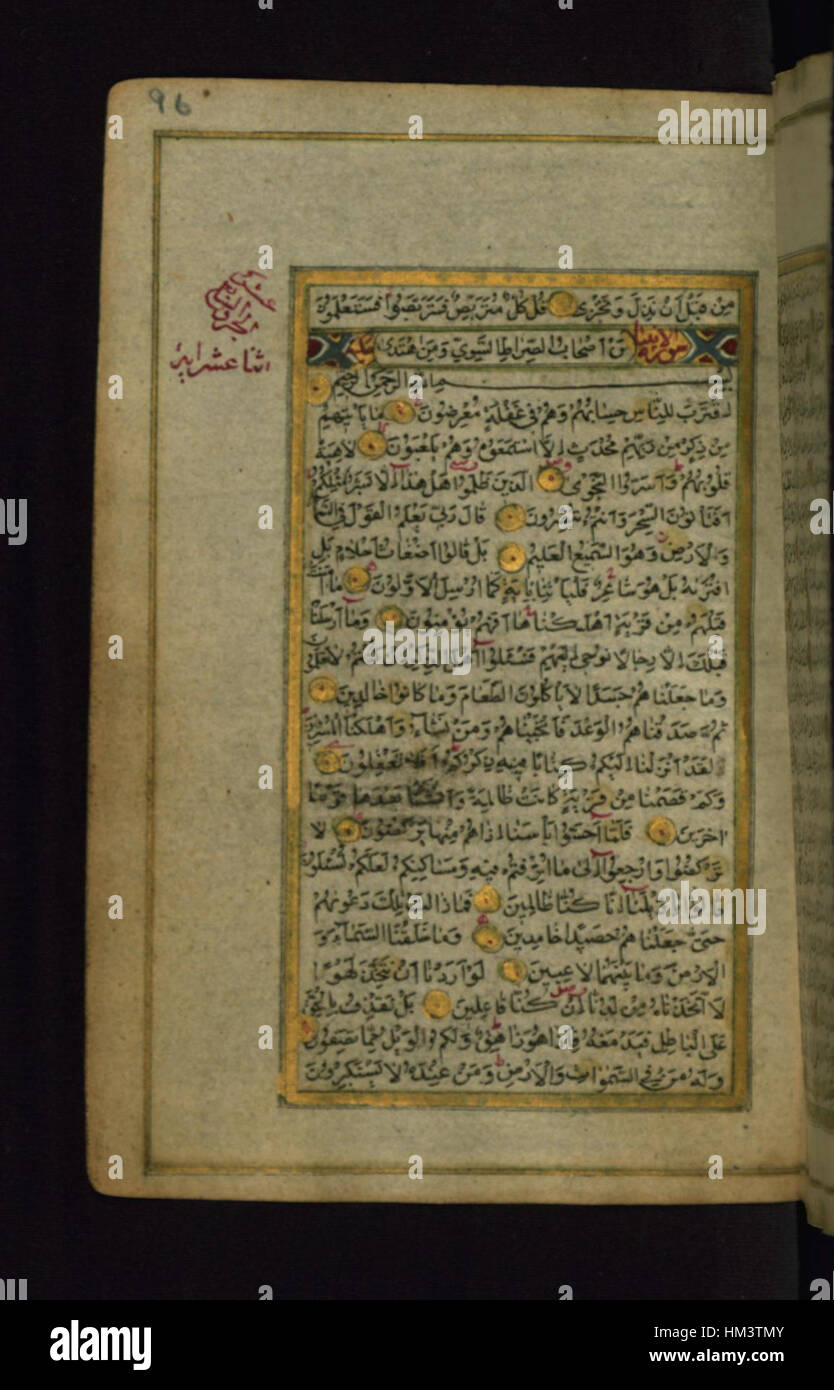 96
من قبل ان نذل ونخزى قل كل متربص فتربصوا فستعلمون
سورة الانبيا من اصحاب الصراط السوي ومن اهتدى
بسم الله الرحمن الرحيم
اقترب للناس حسابهم وهم في غفلة معرضون ما ياتيهم
من ذكر من ربهم محدث الا استمعوه وهم يلعبون لاهية
قلوبهم واسروا النجوى الذين ظلموا هل هذا الا بشر مثلكم
افتاتون السحر وانتم تبصرون قال ربي يعلم القول في السما
والارض وهو السميع العليم بل قالوا اضغاث احلام بل
افتريه بل هو شاعر فلياتنا باية كما ارسل الاولون ما امنت
قبلهم من قرية اهلكناها افهم يؤمنون وما ارسلنا
قبلك الا رجالا نوحي اليهم فسئلوا اهل الذكر ان كنتم لا تعلمون
وما جعلناهم جسدا لا ياكلون الطعام وما كانوا خالدين
ثم صدقناهم الوعد فانجيناهم ومن نشاء واهلكنا المسرفين
لقد انزلنا اليكم كتابا فيه ذكركم افلا تعقلون
وكم قصمنا من قرية كانت ظالمة وانشانا بعدها قوما
اخرين فلما احسوا باسنا اذا هم منها يركضون لا
تركضوا وارجعوا الى ما اترفتم فيه ومساكنكم لعلكم تسئلون
قالوا يا ويلنا انا كنا ظالمين فما زالت تلك دعويهم
حتى جعلناهم حصيدا خامدين وما خلقنا السماء و
الارض وما بينهما لاعبين لو اردنا ان نتخذ لهوا
لا تخذناه من لدنا ان كنا فاعلين بل نقذف بالحق
على الباطل فيدمغه فاذا هو زاهق ولكم الويل مما تصفون
وله من في السموات والارض ومن عنده لا يستكبرون
اثنا عشر اية
alamy
Image ID: HM3TMY
www.alamy.com